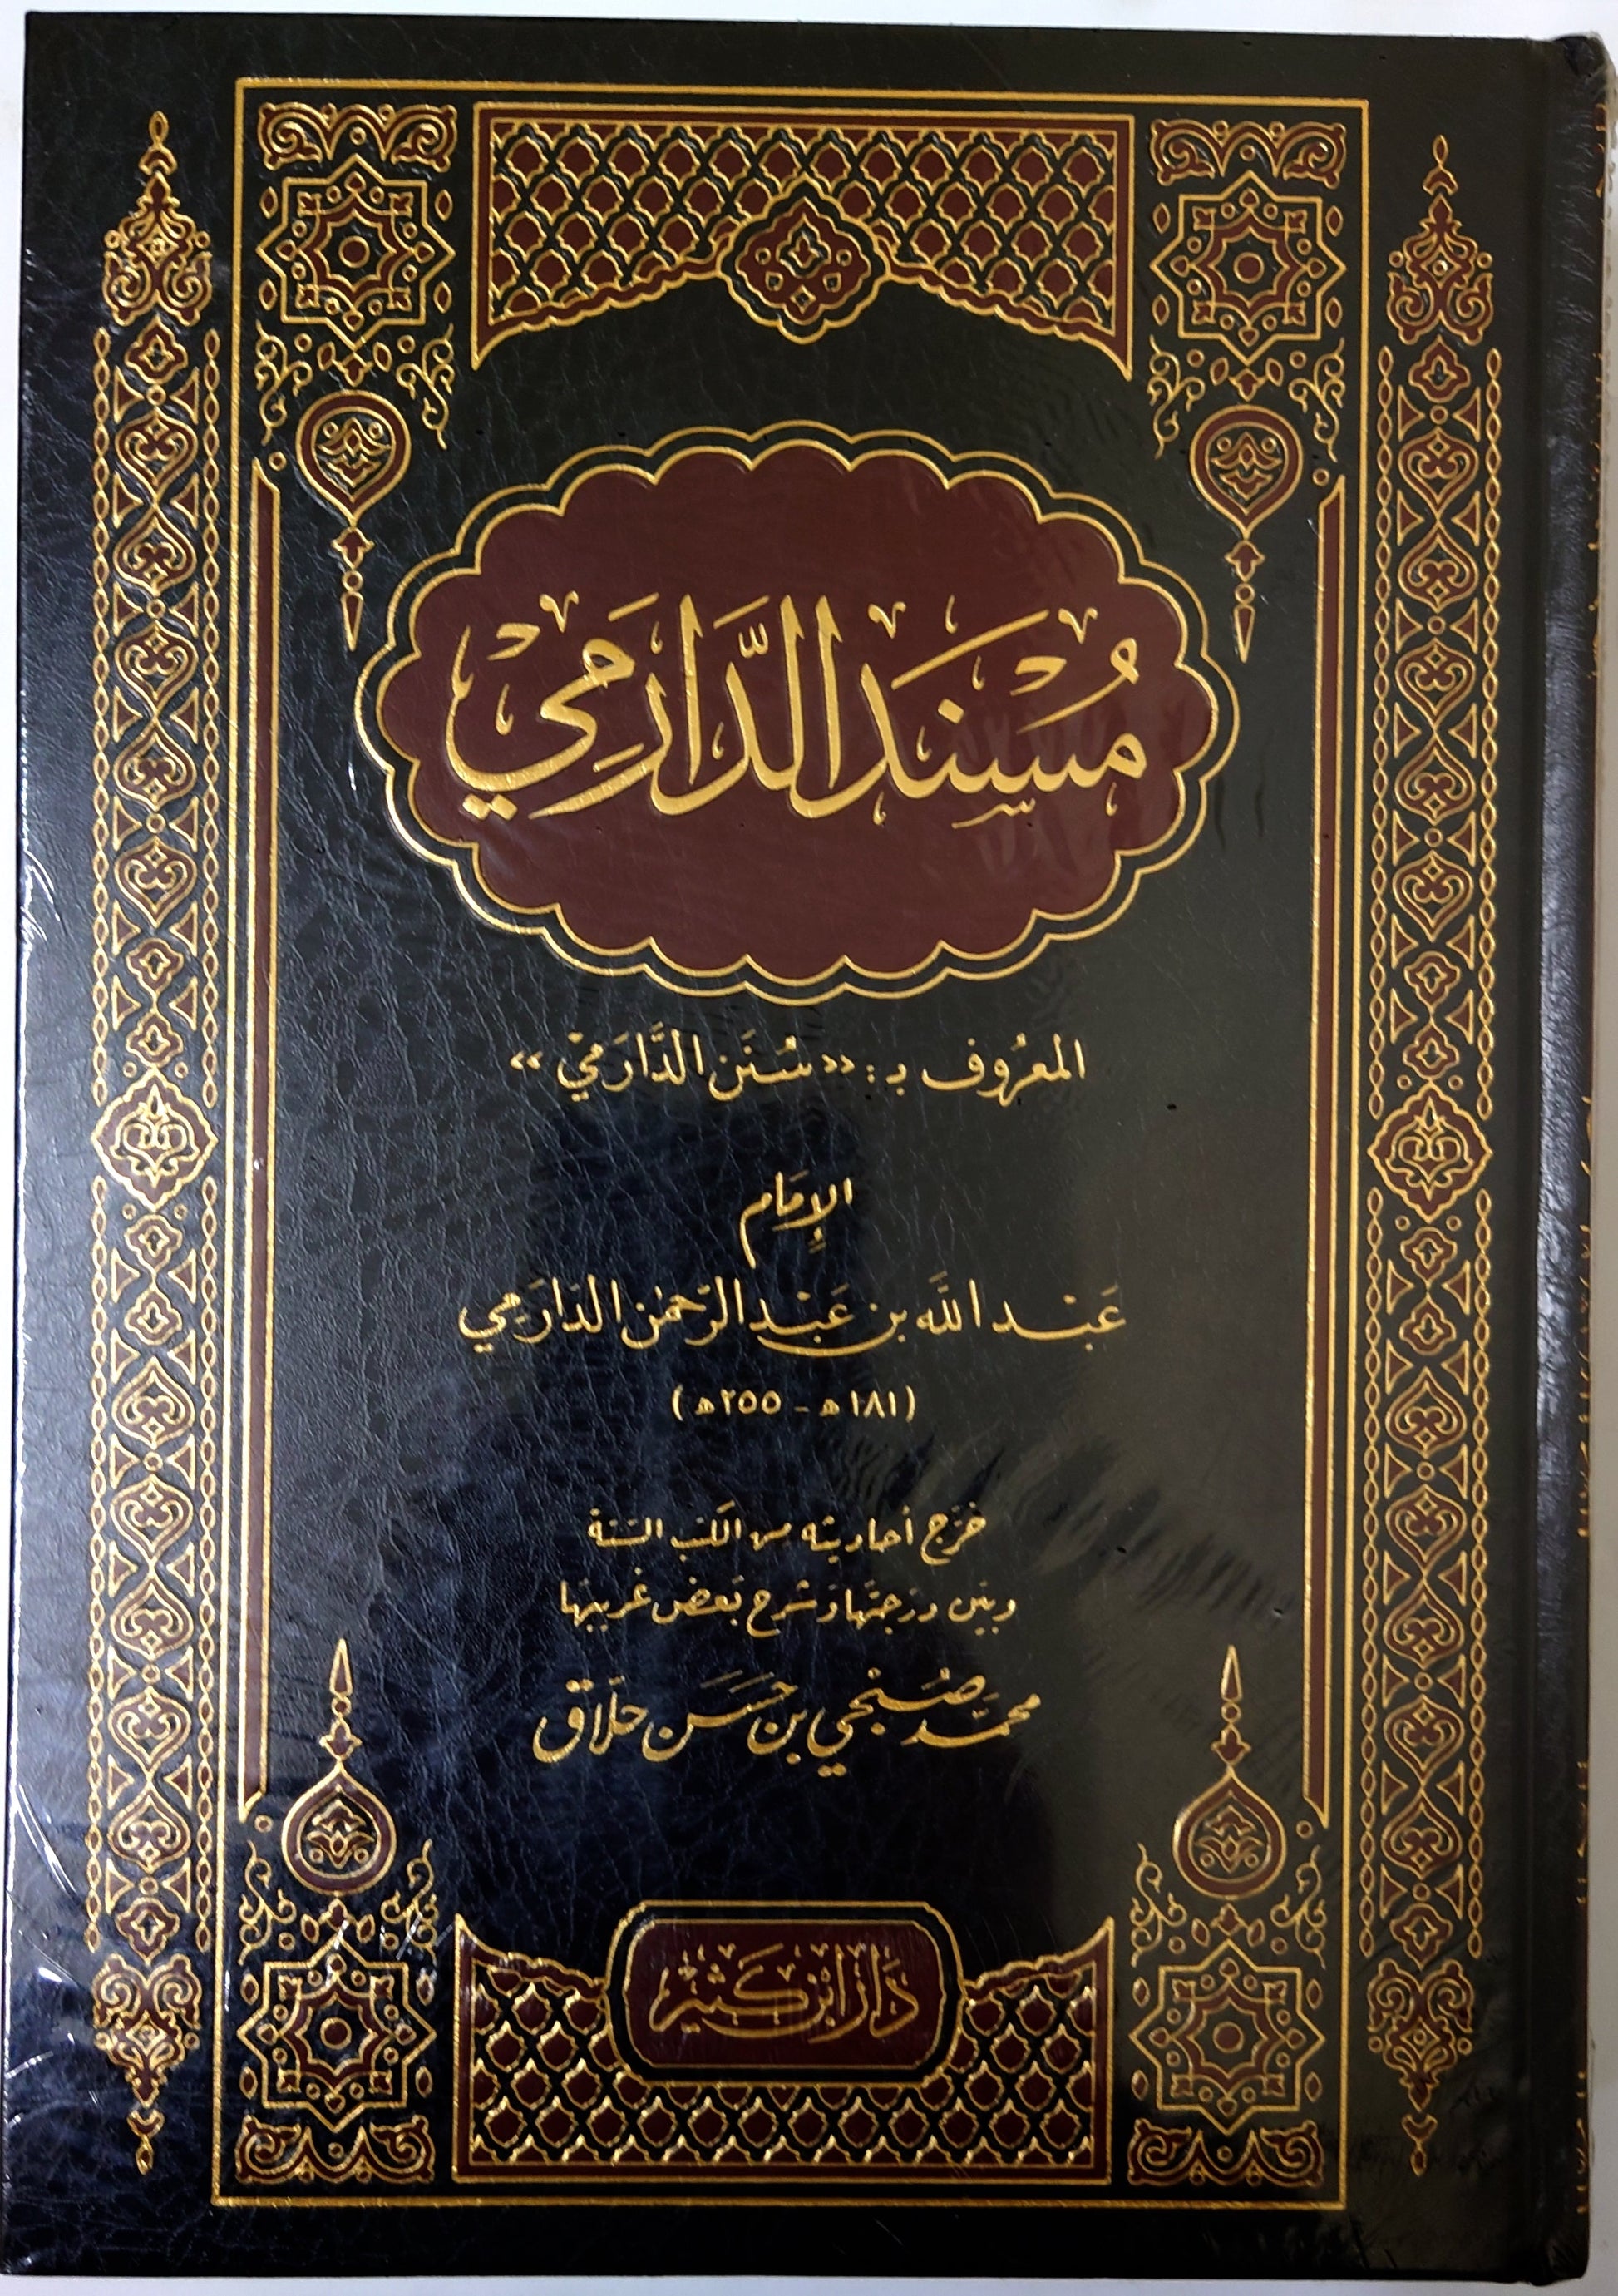 مُسْنَدُ الدَّارَمِيْ
المعرُوف بـ: «سُنَن الدَّارَمِيْ»
الإِمَام
عَبْد اللَّه بن عَبْد الرَّحمٰن الدَّارَمِي
(١٨١ هـ - ٢٥٥ هـ)
خرّج أحاديثه من الكتب الستة
وبيّن درجتها وشرح بَعض غريبها
محمَّد صُبْحِي بن حَسَن حلَّاق
دَار ابْن كَثِير